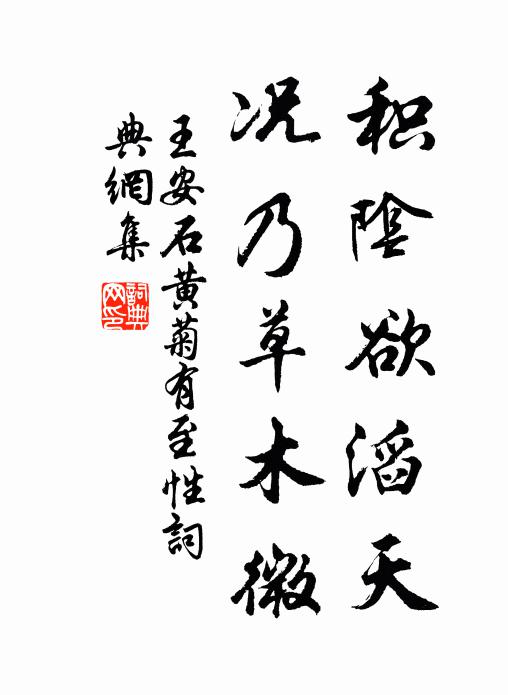 积陰欲滔天
况乃草木微
王安石黄菊有至性詞
典網集
詞典
网印